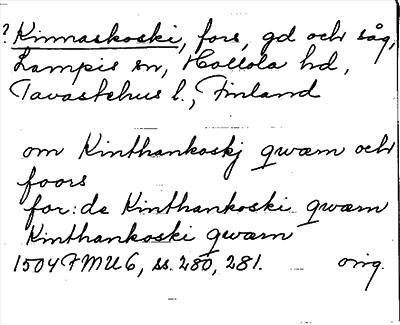 ? Kinnaskoski, fors, gd och såg,
Lampis sn, Hollola hd,
Tavastehus l., Finland
om Kinthankoskj qwæm och
foors
for: de Kinthankoski qwæm
Kinthankoski qwæm
1504 FMU 6, ss. 280, 281. orig.